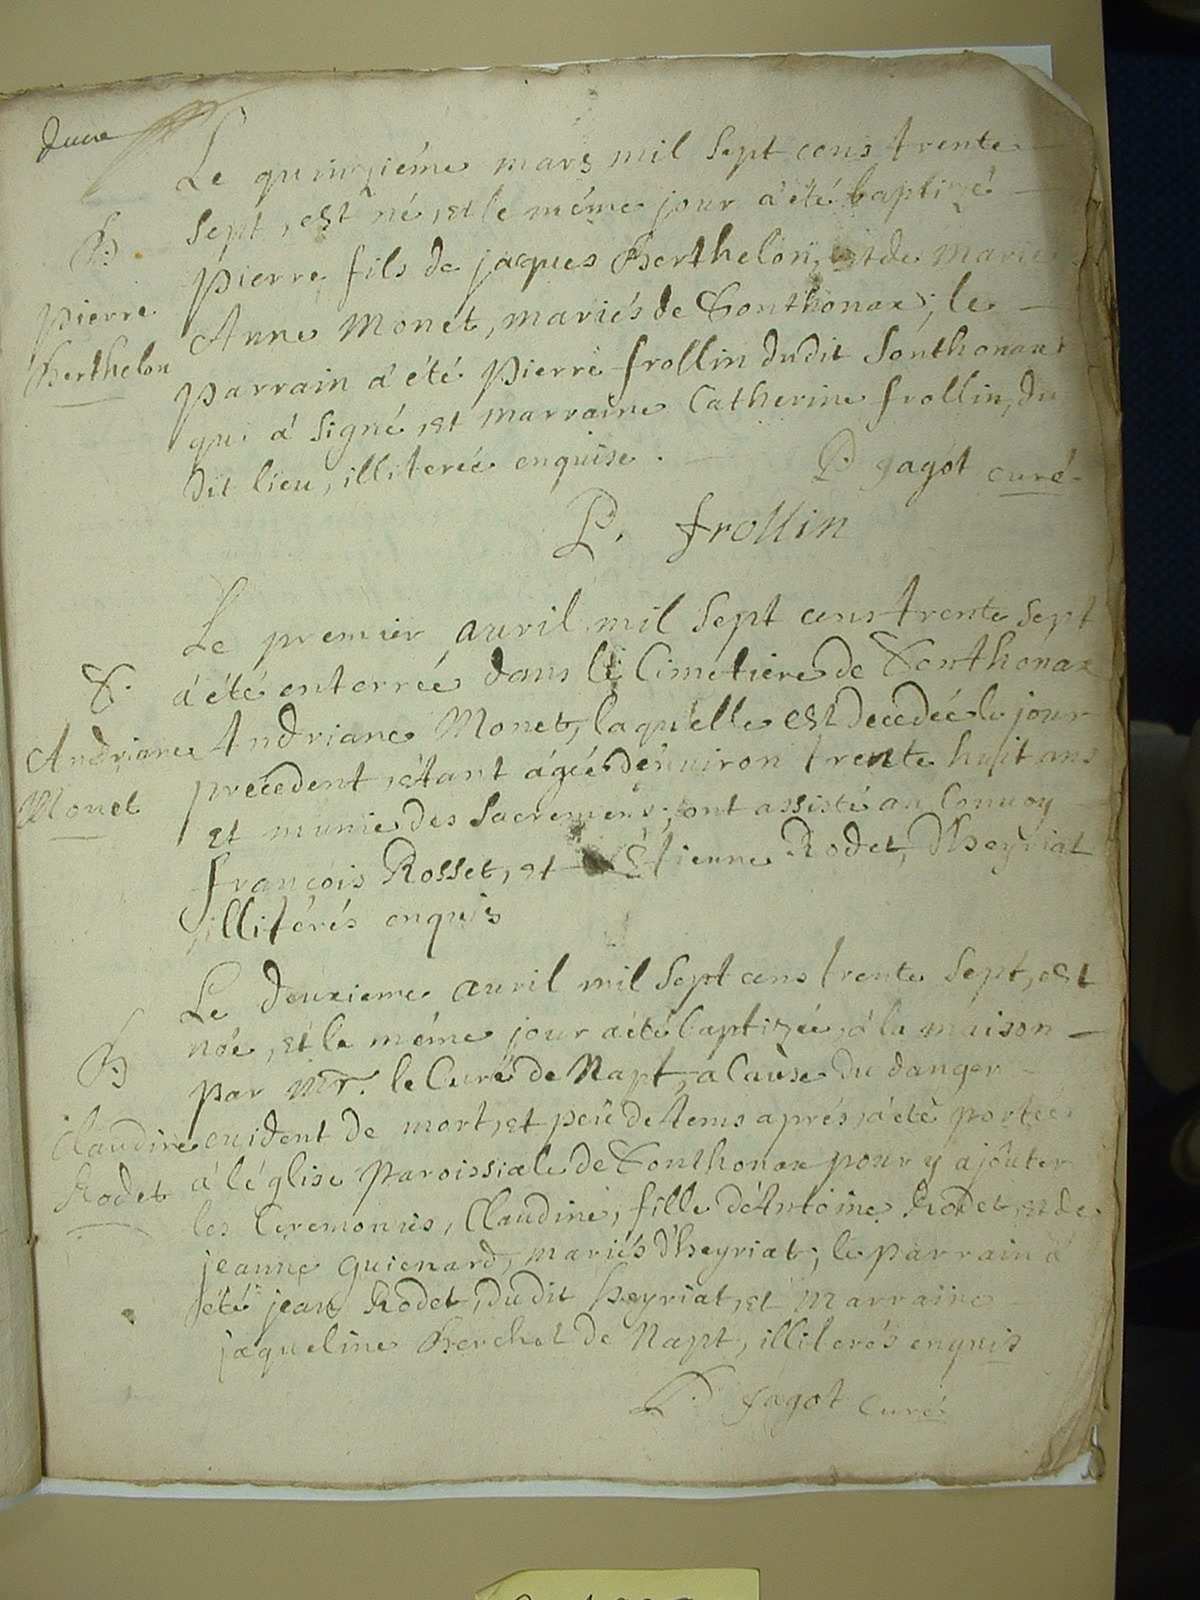 Le quinziéme mars mil sept cens trente
sept, est né, et le méme jour a été baptizé
B.
pierre fils de jacques Berthelon, et de marie
pierre
Anne Monet, mariés de Sonthonax; le
Berthelon
parrain a été pierre frollin dudit Sonthonax
qui a signé et marraine Catherine frollin, du
dit lieu, illiterée enquise.
P. fagot curé
P. frollin
Le premier avril mil sept cens trente sept
S.
a été enterrée dans le Cimetiere de Sonthonax
Andriane
Andriane Monet, laquelle est decedée le jour
Monet
precedent, étant agée denuiron trente huit ans
et munie des sacremens; ont assisté au Conuoy
françois Rosset, et Étienne Rodet, d'heyriat
illitérés enquis
Le deuxieme avril mil sept cens trente sept, est
née, et le méme jour a été baptizée, á la maison
B.
par Mr. le Curé de Napt, a Cause du danger
Claudine
euident de mort, et peu de tems aprés, a été portée
Rodet
á l'église paroissiale de Sonthonax pour y ajouter
les Ceremonies, Claudine, fille d'Antoine Rodet, et de
jeanne Guienard, mariés d'heyriat; le parrain a
été jean Rodet, dudit heyriat, et marraine
jaqueline Berchet de Napt, illiterés enquis
P. fagot Curé